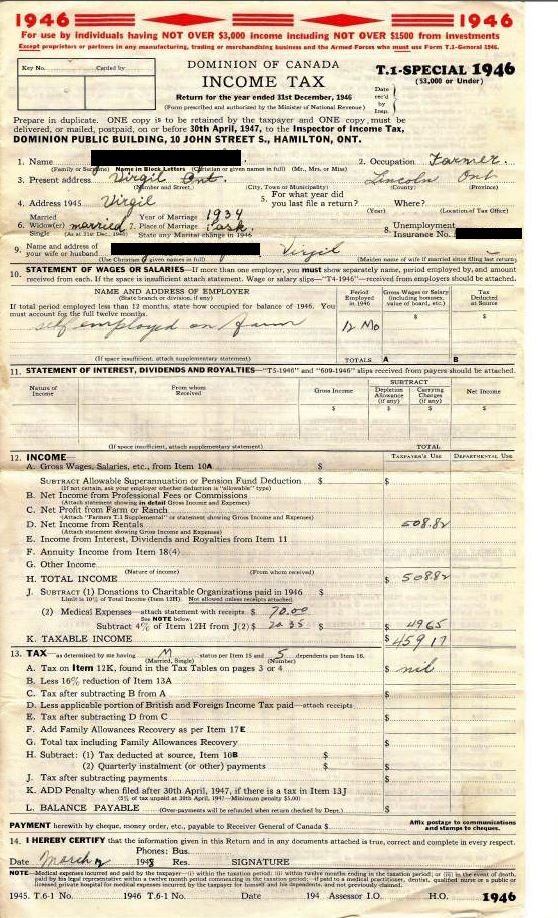 1946 1946
For use by individuals having NOT OVER $3,000 income including NOT OVER $1500 from investments
Except proprietors or partners in any manufacturing, trading or merchandising business and the Armed Forces who must use Form T.1-General 1946.
Key No. Carded by
DOMINION OF CANADA
INCOME TAX
Return for the year ended 31st December, 1946
(Form prescribed and authorized by the Minister of National Revenue)
T.1-SPECIAL 1946
($3,000 or Under)
Date rec'd by Insp.
Prepare in duplicate. ONE copy is to be retained by the taxpayer and ONE copy must be
delivered, or mailed, postpaid, on or before 30th April, 1947, to the Inspector of Income Tax,
DOMINION PUBLIC BUILDING, 10 JOHN STREET S., HAMILTON, ONT.
1. Name 2. Occupation Farmer.
(Family or Surname) Name in Block Letters (Christian or given names in full) (Mr., Mrs. or Miss)
3. Present address Virgil Ont. Lincoln Ont
(Number and Street) (City, Town or Municipality) (County) (Province)
4. Address 1945 Virgil 5. For what year did you last file a return? Where?
(Year) (Location of Tax Office)
6. Married Widow(er) Single married 7. Year of Marriage 1934 Place of Marriage Sask. 8. Unemployment Insurance No.
(As at 31st Dec. 1946) State any Marital change in 1946
9. Name and address of your wife or husband Virgil
(Use Christian or given names in full) (Maiden name of wife if married since filing last return)
10. STATEMENT OF WAGES OR SALARIES—If more than one employer, you must show separately name, period employed by, and amount
received from each. If the space is insufficient attach statement. Wage or salary slips—"T4-1946"—received from employers should be attached.
NAME AND ADDRESS OF EMPLOYER
(State branch or division, if any)
Period Employed in 1946 Gross Wages or Salary (including bonuses, value of board, etc.) Tax Deducted at Source
If total period employed less than 12 months, state how occupied for balance of 1946. You
must account for the full twelve months. $ $
self employed on farm 12 Mo
(If space insufficient, attach supplementary statement) TOTALS A B
11. STATEMENT OF INTEREST, DIVIDENDS AND ROYALTIES—"T5-1946" and "609-1946" slips received from payers should be attached.
Nature of Income From whom Received Gross Income SUBTRACT Depletion Allowance (if any) Carrying Charges (if any) Net Income
$ $ $ $
(If space insufficient, attach supplementary statement) TOTAL
12. INCOME— TAXPAYER'S USE DEPARTMENTAL USE
A. Gross Wages, Salaries, etc., from Item 10A $
SUBTRACT Allowable Superannuation or Pension Fund Deduction $ $
(If not certain, ask your employer whether deduction is "allowable" type)
B. Net Income from Professional Fees or Commissions
(Attach statement showing in detail Gross Income and Expenses)
C. Net Profit from Farm or Ranch
(Attach "Farmers T.1 Supplemental" or statement showing Gross Income and Expenses)
D. Net Income from Rentals 508.82
(Attach statement showing Gross Income and Expenses)
E. Income from Interest, Dividends and Royalties from Item 11
F. Annuity Income from Item 18(4)
G. Other Income
(Nature of income) (From whom received)
H. TOTAL INCOME $ 508 82
J. SUBTRACT (1) Donations to Charitable Organizations paid in 1946 $
Limit is 10% of Total Income (Item 12H). Not allowed unless receipts attached.
(2) Medical Expenses—attach statement with receipts. $ 70.00
See NOTE below.
Subtract 4% of Item 12H from J(2) $ 20 35 $ 49 65
K. TAXABLE INCOME $ 459 17
13. TAX as determined by me having M status per Item 15 and 5 dependents per Item 16.
(Married, Single) (Number)
A. Tax on Item 12K, found in the Tax Tables on pages 3 or 4 $ nil
B. Less 16% reduction of Item 13A
C. Tax after subtracting B from A $
D. Less applicable portion of British and Foreign Income Tax paid—attach receipts
E. Tax after subtracting D from C $
F. Add Family Allowances Recovery as per Item 17E
G. Total tax including Family Allowances Recovery $
H. Subtract: (1) Tax deducted at source, Item 10B $
(2) Quarterly instalment (or other) payments $
J. Tax after subtracting payments $
K. ADD Penalty when filed after 30th April, 1947, if there is a tax in Item 13J
(5% of tax unpaid at 30th April, 1947—Minimum penalty $5.00)
L. BALANCE PAYABLE (Over-payments will be refunded when return checked by Dept.) $
PAYMENT herewith by cheque, money order, etc., payable to Receiver General of Canada $ Affix postage to communications and stamps to cheques.
14. I HEREBY CERTIFY that the information given in this Return and in any documents attached is true, correct and complete in every respect.
Phones: Bus.
Date March 194 Res. SIGNATURE
NOTE—Medical expenses incurred and paid by the taxpayer—(i) within the taxation period; (ii) within twelve months ending in the taxation period; or (iii) in the event of death,
paid by his legal representative within a twelve month period commencing in the taxation period;—if paid to a medical practitioner, dentist, qualified nurse or a public or
licensed private hospital for medical expenses incurred by the taxpayer for himself and his dependents, and not previously claimed.
1945. T.6-1 No. 1946 T.6-1 No. Date 194 Assessor I.O. H.O. 1946